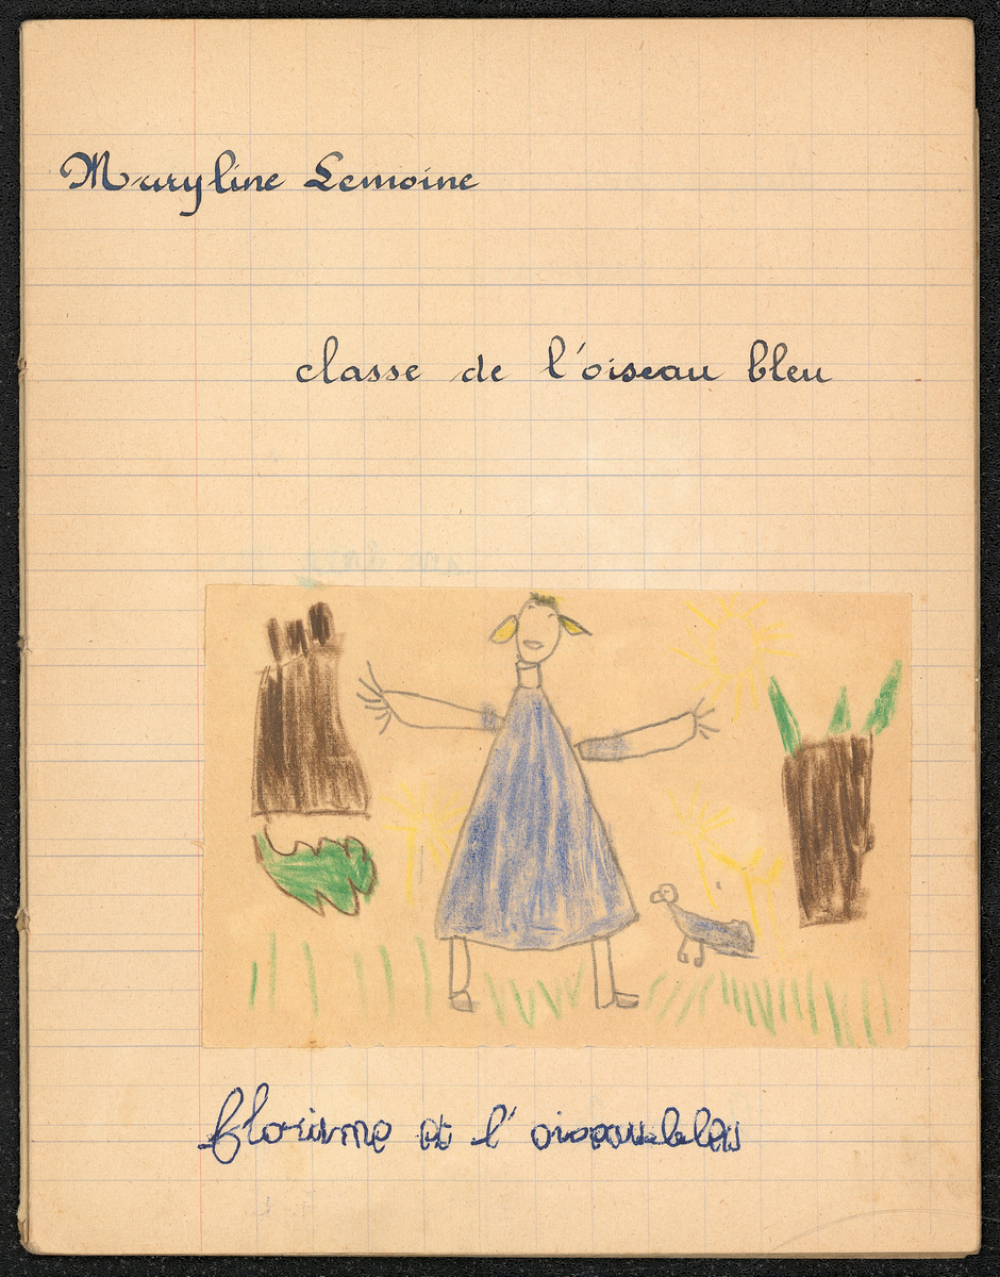 Maryline Lemoine
classe de l'oiseau bleu
florine et l'oiseau bleu